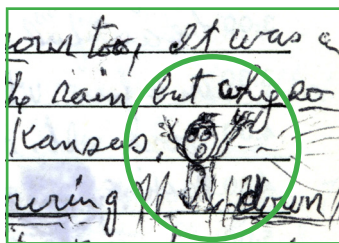 your too, It was a
the rain, but why so
Kansas.
ouring down